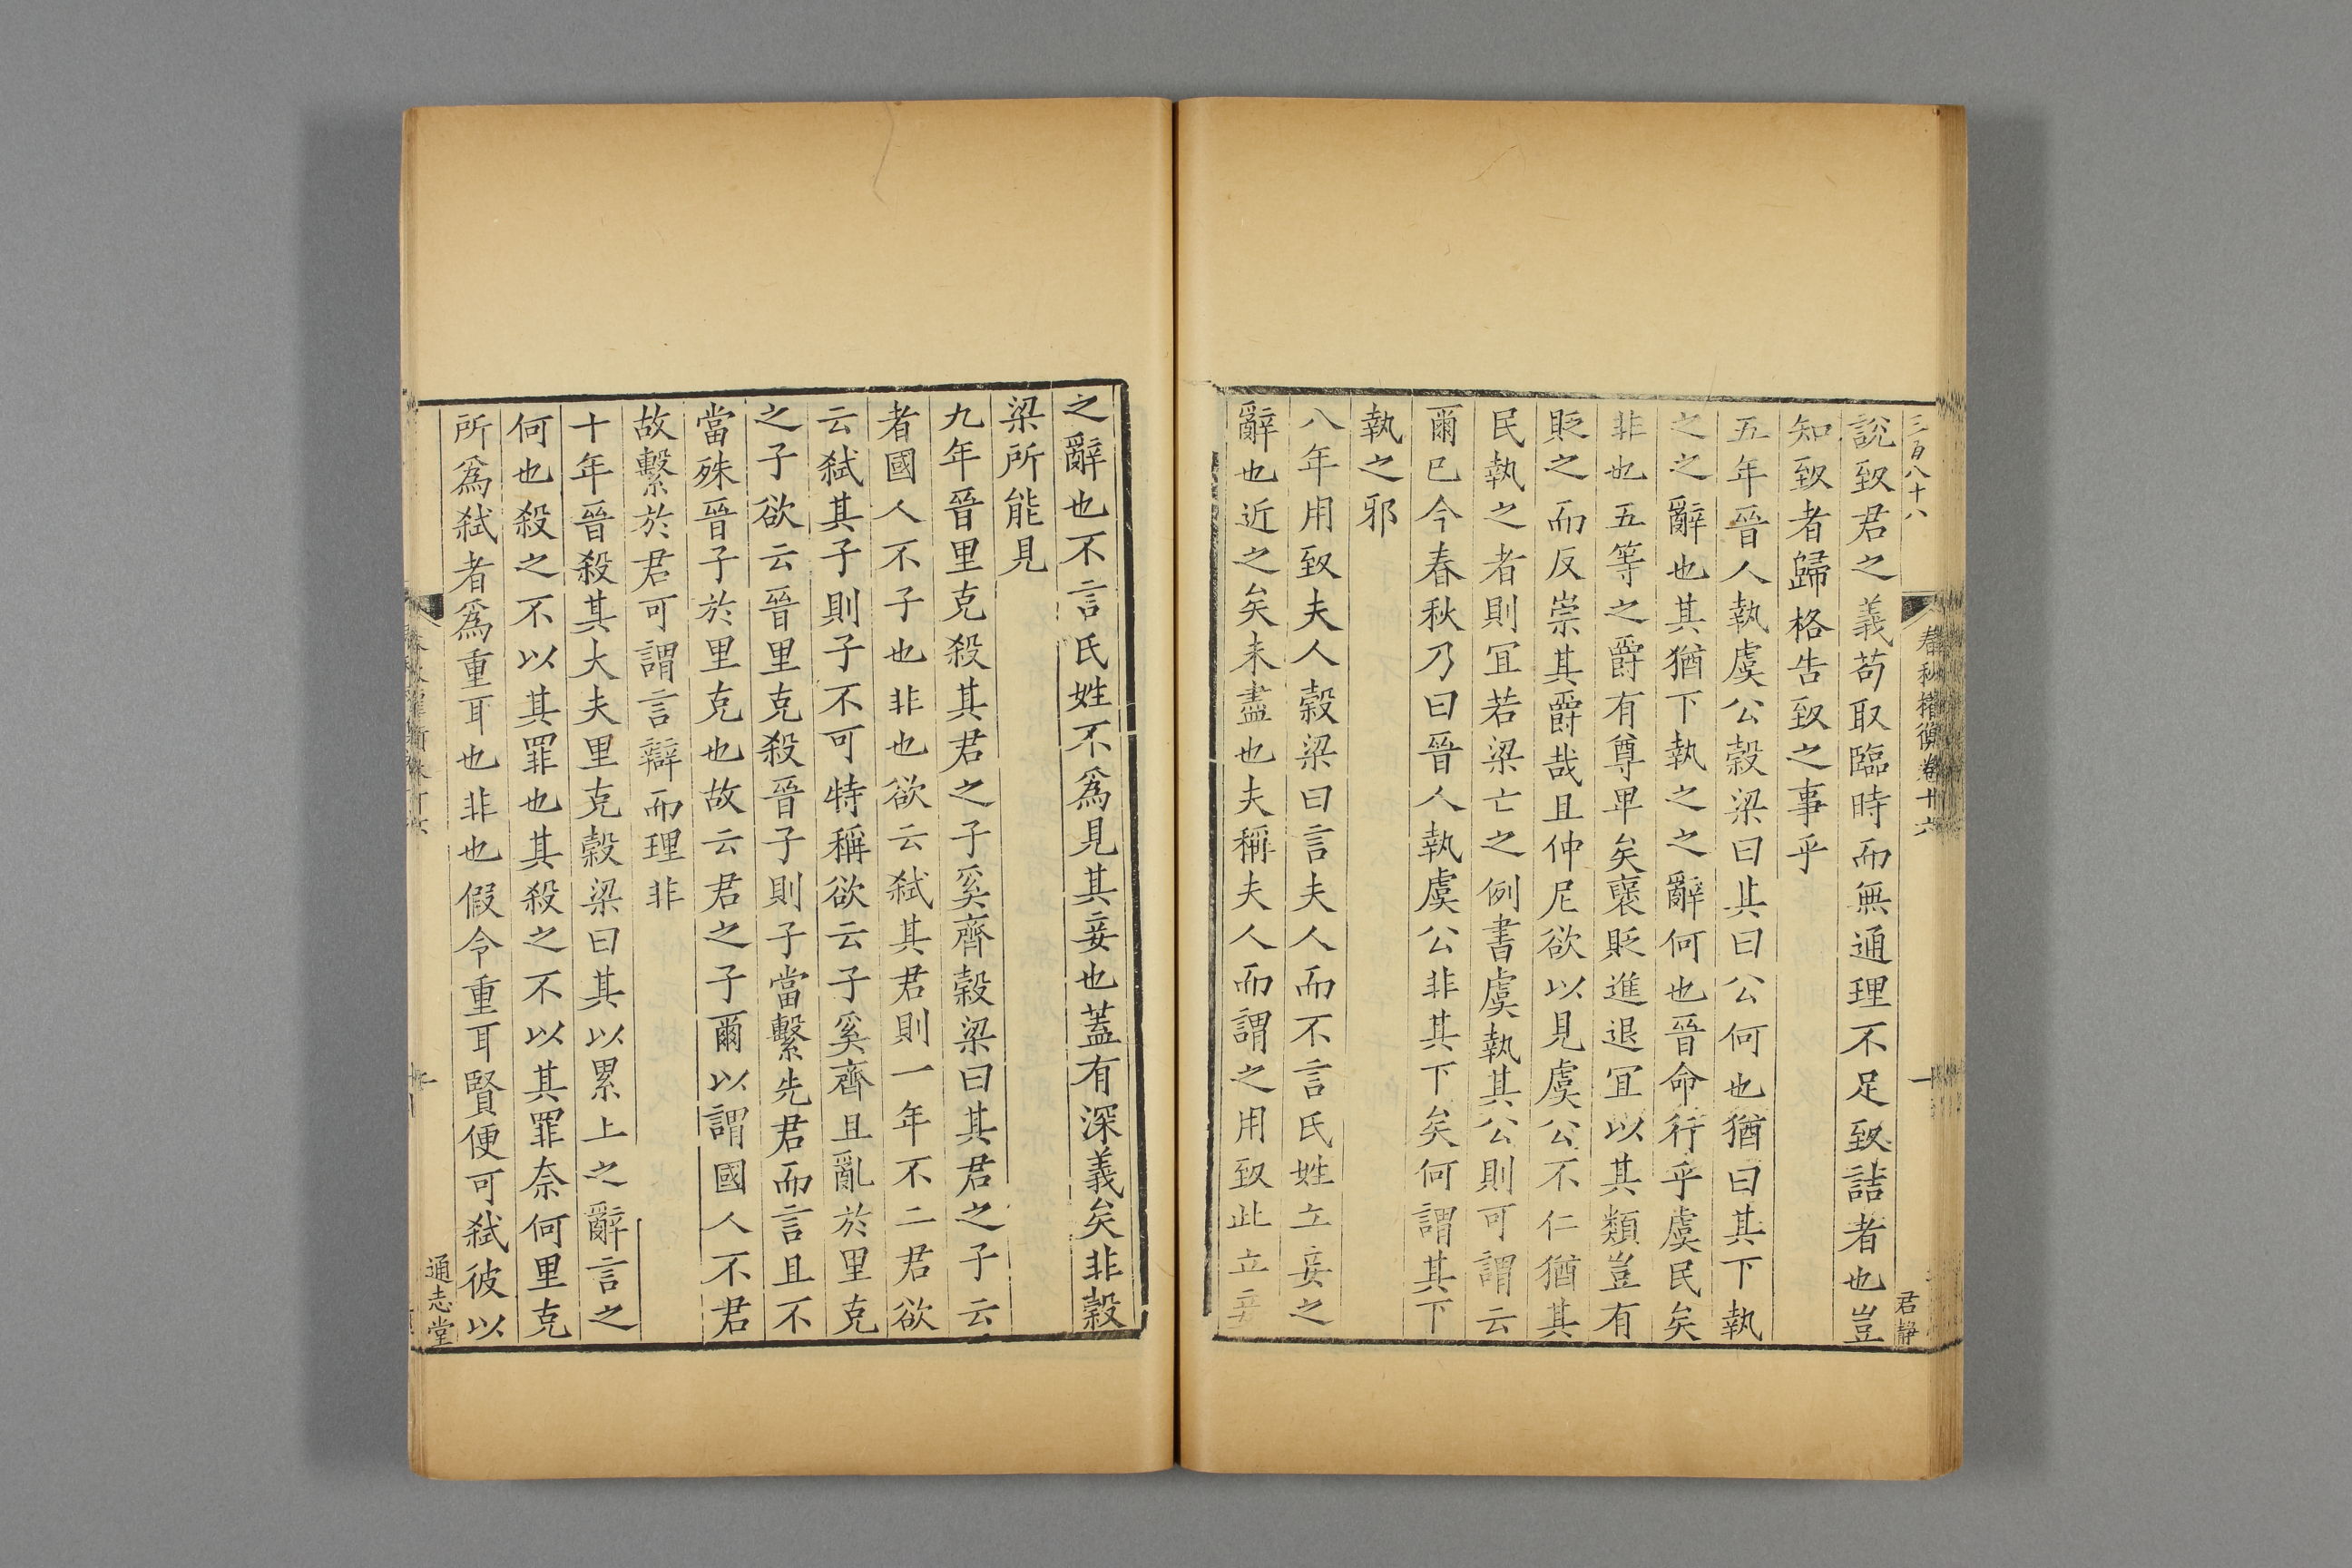 三百八十八
春秋權衡卷十六
君靜
說致君之義苟取臨時而無通理不足致詰者也豈
知致者歸格告致之事乎
五年晉人執虞公穀梁曰其曰公何也猶曰其下執
之之辭也其猶下執之之辭何也晉命行乎虞民矣
非也五等之爵有尊卑矣襃貶進退冝以其類豈有
貶之而反崇其爵哉且仲尼欲以見虞公不仁猶其
民執之者則冝若梁亡之例書虞執其公則可謂云
爾已今春秋乃曰晉人執虞公非其下矣何謂其下
執之邪
八年用致夫人穀梁曰言夫人而不言氏姓立妾之
辭也近之矣未盡也夫稱夫人而謂之用致此立妾
之辭也不言氏姓不爲見其妾也蓋有深義矣非穀
梁所能見
九年晉里克殺其君之子奚齊穀梁曰其君之子云
者國人不子也非也欲云弑其君則一年不二君欲
云弑其子則子不可特稱欲云子奚齊且亂於里克
之子欲云晉里克殺晉子則子當繫先君而言且不
當殊晉子於里克也故云君之子爾以謂國人不君
故繫於君可謂言辯而理非
十年晉殺其大夫里克穀梁曰其以累上之辭言之
何也殺之不以其罪也其殺之不以其罪奈何里克
所爲弑者爲重耳也非也假令重耳賢便可弑彼以
通志堂